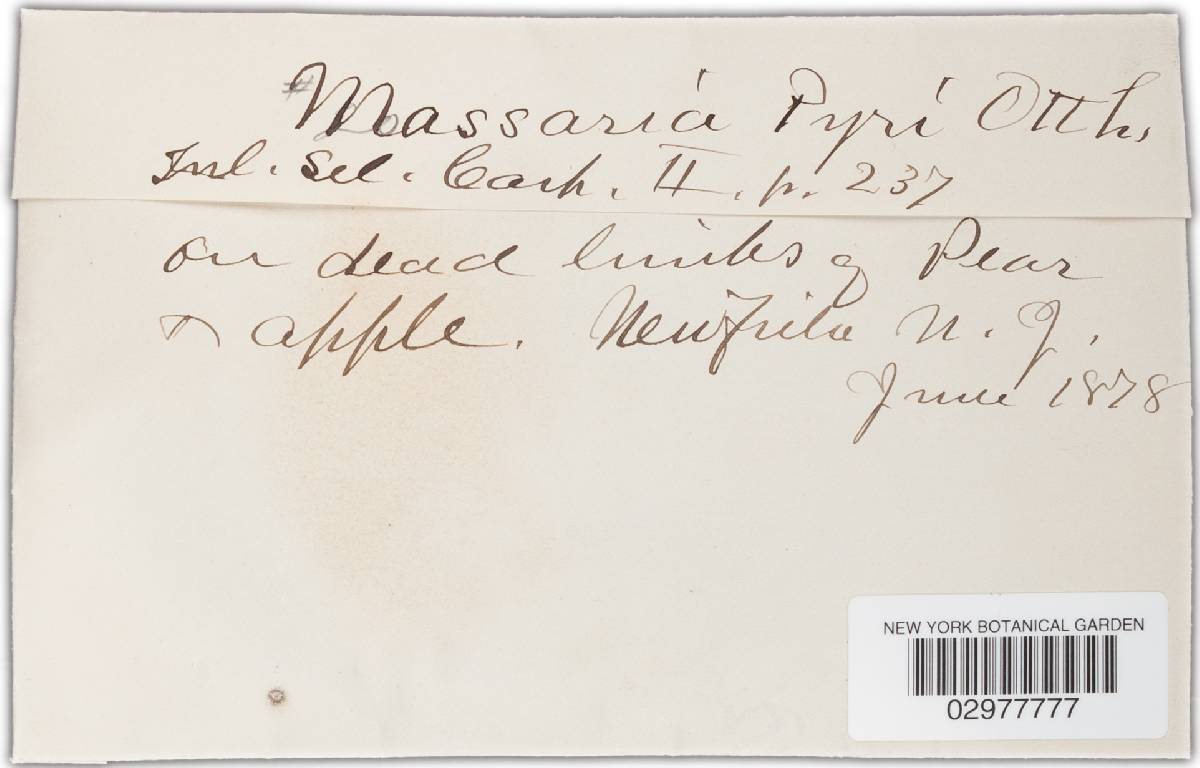 Massaria Pyri Otth,
Tul. Sel. Carp. II. p. 237
on dead limbs of Pear
& apple. Newfield N. J.
June 1878
NEW YORK BOTANICAL GARDEN
02977777